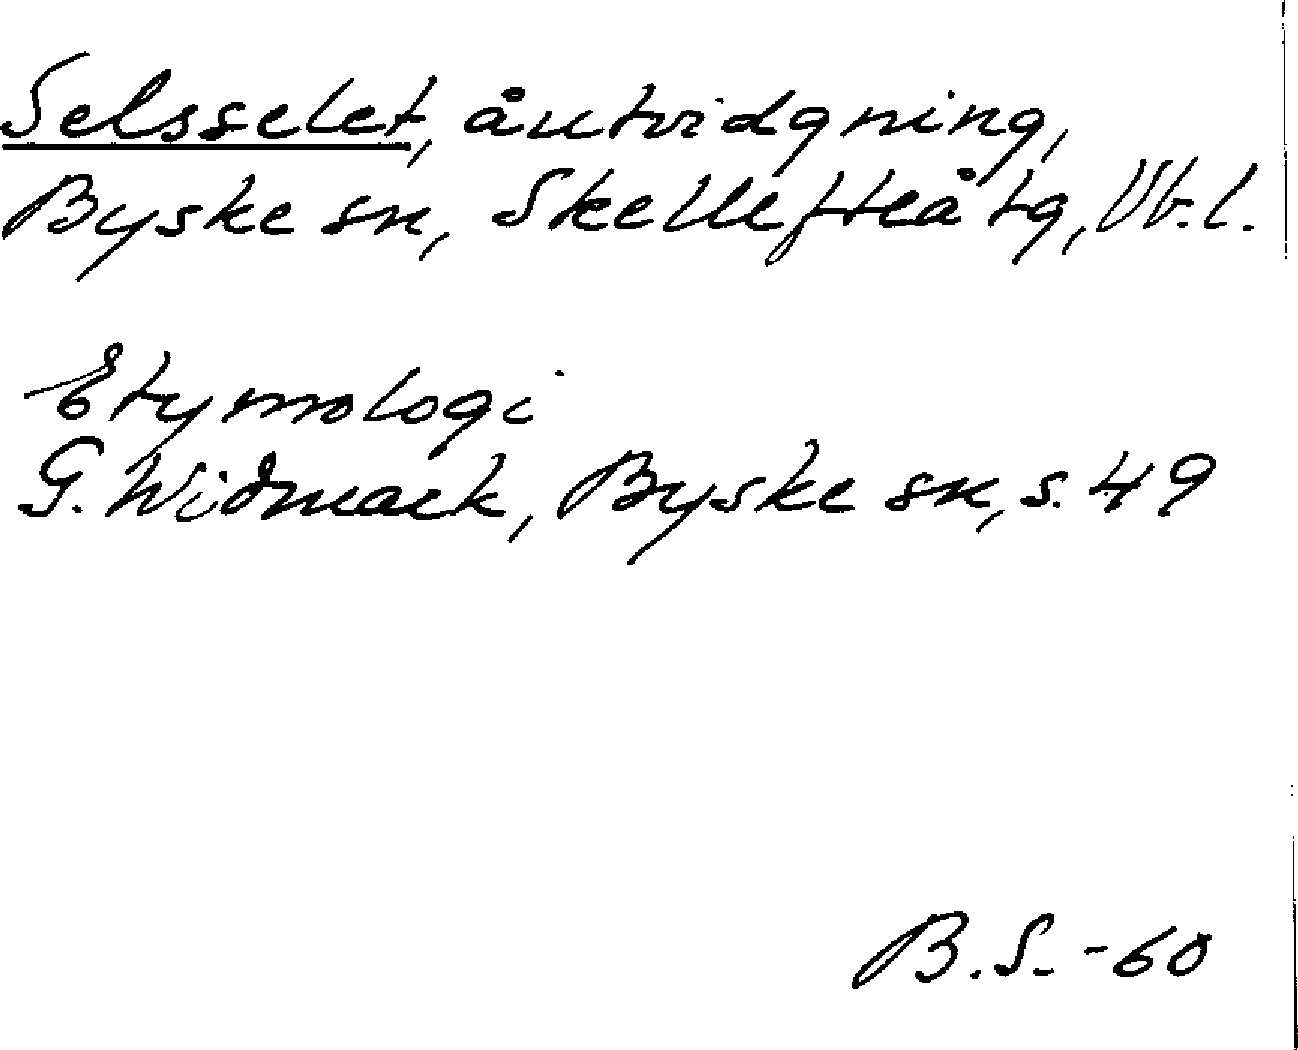 Selsselet, åutvidgning,
Byske sn, Skellefteå tg, Vb. l.
Etymologi
G. Widmark, Byske sn, s. 49
B.S. -60